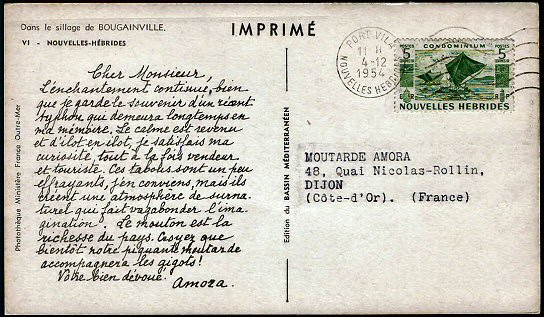 Dans le sillage de BOUGAINVILLE.
VI - NOUVELLES-HÉBRIDES
IMPRIMÉ
Cher Monsieur,
L'enchantement continue, bien
que je garde le souvenir d'un récent
typhon qui demeura longtemps en
ma mémoire. Le calme est revenu
et d'îlot en îlot, je satisfais ma
curiosité, tout à la fois vendeur
et touriste. Ces tabous sont un peu
effrayants, j'en conviens, mais ils
créent une atmosphère de surna-
turel qui fait vagabonder l'ima-
gination. Le mouton est la
richesse du pays. Croyez que
bientôt notre piquante moutarde
accompagnera les gigots!
Votre bien dévoué.
Amora.
Photothèque Ministère France Outre-Mer
Edition du BASSIN MÉDITERRANÉEN
PORT-VILA
11 H
4-12
1954
NOUVELLES HEBRIDES
POSTES
CONDOMINIUM
POSTES
5
5
NOUVELLES HÉBRIDES
MOUTARDE AMORA
48, Quai Nicolas-Rollin,
DIJON
(Côte-d'Or). (France)